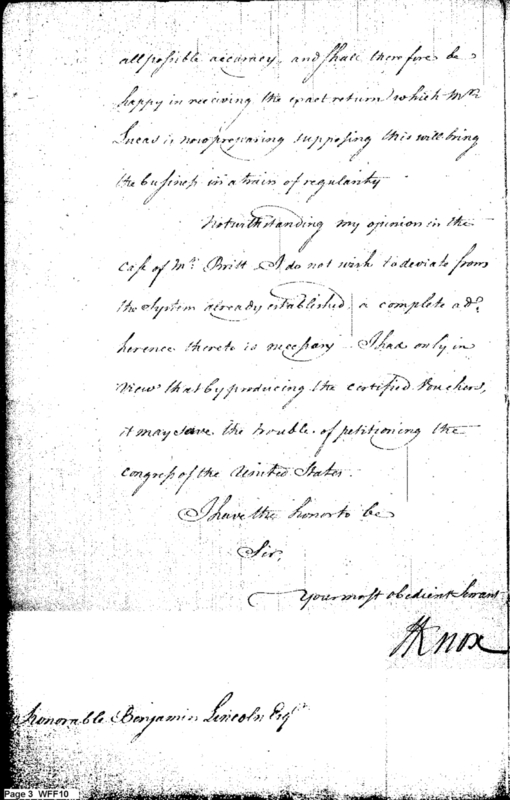 all possible accuracy, and shall therefore be
happy in receiving the exact return which Mr
Lucas is now preparing supposing this will bring
the business in a train of regularity
Notwithstanding my opinion in the
case of Mr. Britt I do not wish to deviate from
the System already established, a complete ad-
herence thereto is necessary. I had only in
view that by producing the certified Vouchers,
it may save the trouble of petitioning the
Congress of the United States.
I have the honor to be
Sir,
Your most obedient Servant
HKnox
Honorable Benjamin Lincoln Esqr.
Page 3 WFF10